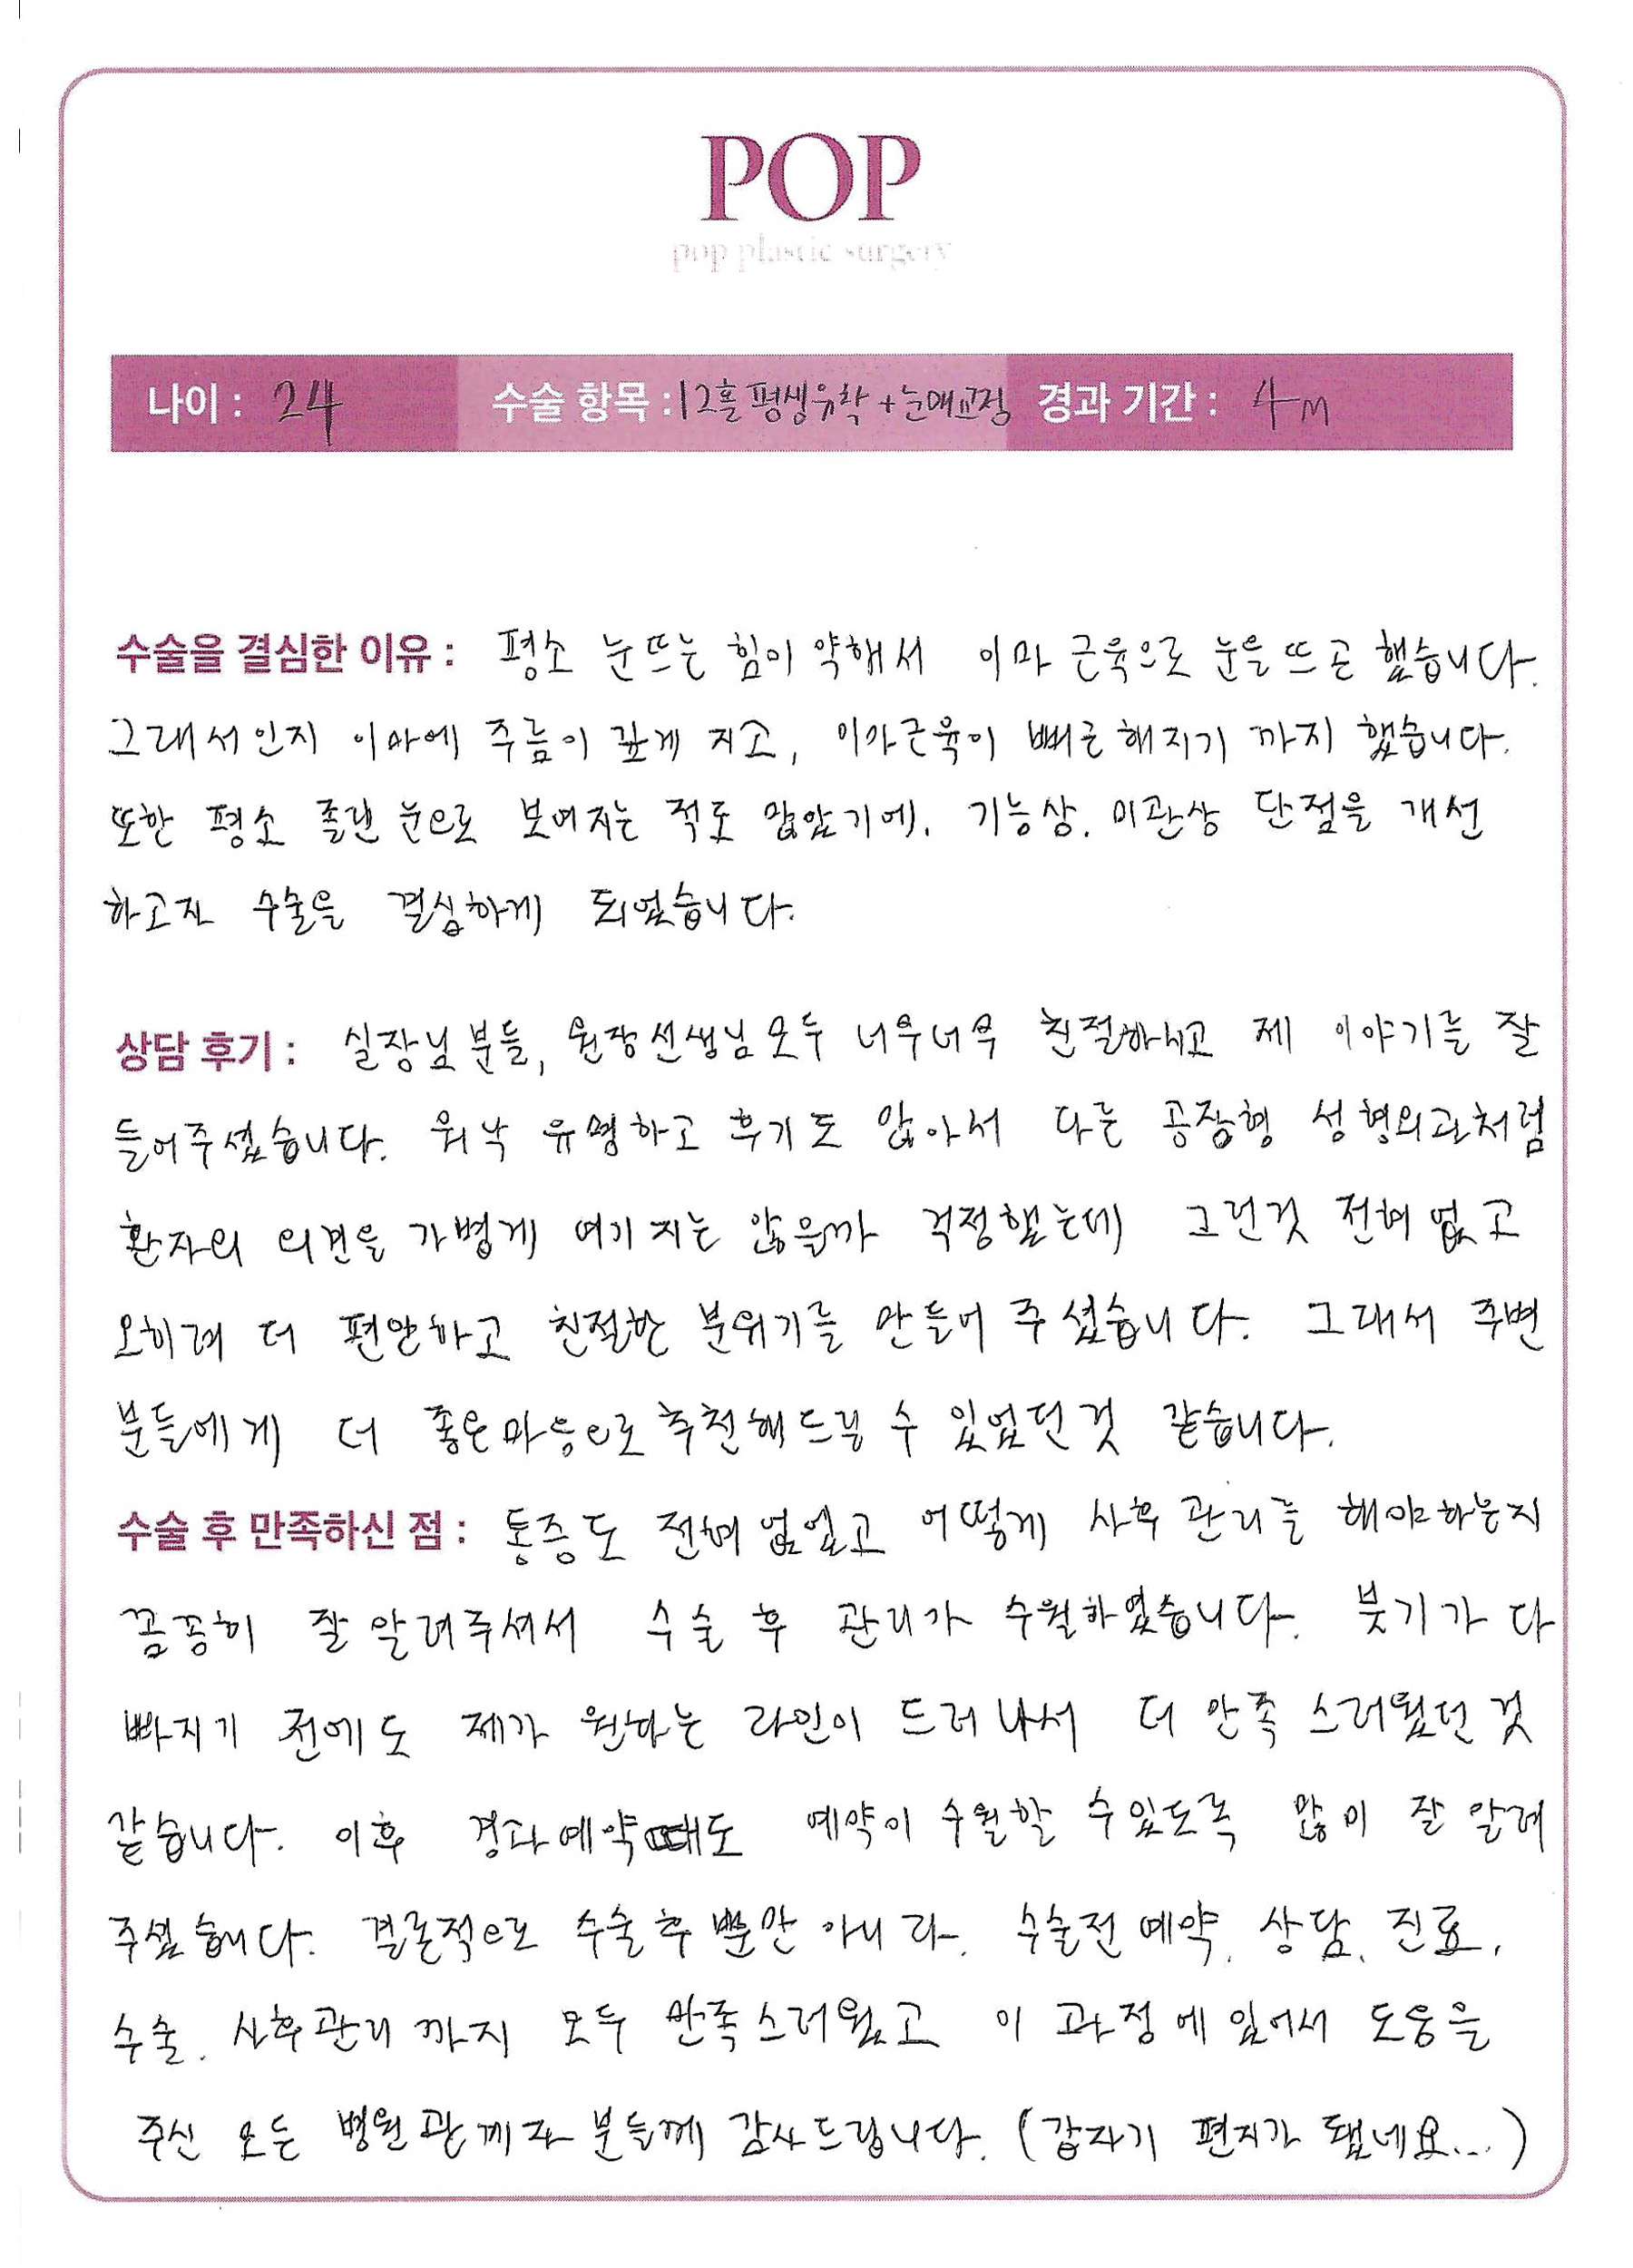 POP
pop plastic surgery
나이 : 24 수술 항목 : 12홀 평생유착 + 눈매교정 경과 기간 : 4M
수술을 결심한 이유 : 평소 눈뜨는 힘이 약해서 이마 근육으로 눈을 뜨곤 했습니다.
그래서인지 이마에 주름이 깊게 지고, 이마근육이 뻐근해지기 까지 했습니다.
또한 평소 졸린 눈으로 보여지는 적도 많았기에, 기능상, 미관상 단점을 개선
하고자 수술을 결심하게 되었습니다.
상담 후기 : 실장님분들, 원장선생님모두 너무너무 친절하시고 제 이야기를 잘
들어주셨습니다. 워낙 유명하고 후기도 많아서 다른 공장형 성형외과처럼
환자의 의견을 가볍게 여기지는 않을까 걱정했는데 그런것 전혀 없고
오히려 더 편안하고 친절한 분위기를 만들어 주셨습니다. 그래서 주변
분들에게 더 좋은마음으로 추천해드릴 수 있었던것 같습니다.
수술 후 만족하신 점 : 통증도 전혀 없었고 어떻게 사후 관리를 해야하는지
꼼꼼히 잘 알려주셔서 수술 후 관리가 수월하였습니다. 붓기가 다
빠지기 전에도 제가 원하는 라인이 드러나서 더 만족스러웠던 것
같습니다. 이후 경과예약때도 예약이 수월할 수있도록 많이 잘 알려
주셨습니다. 결론적으로 수술후 뿐만 아니라, 수술전 예약, 상담, 진료,
수술, 사후관리 까지 모두 만족스러웠고 이 과정에 있어서 도움을
주신 모든 병원관계자 분들께 감사드립니다. (갑자기 편지가 됐네요...)